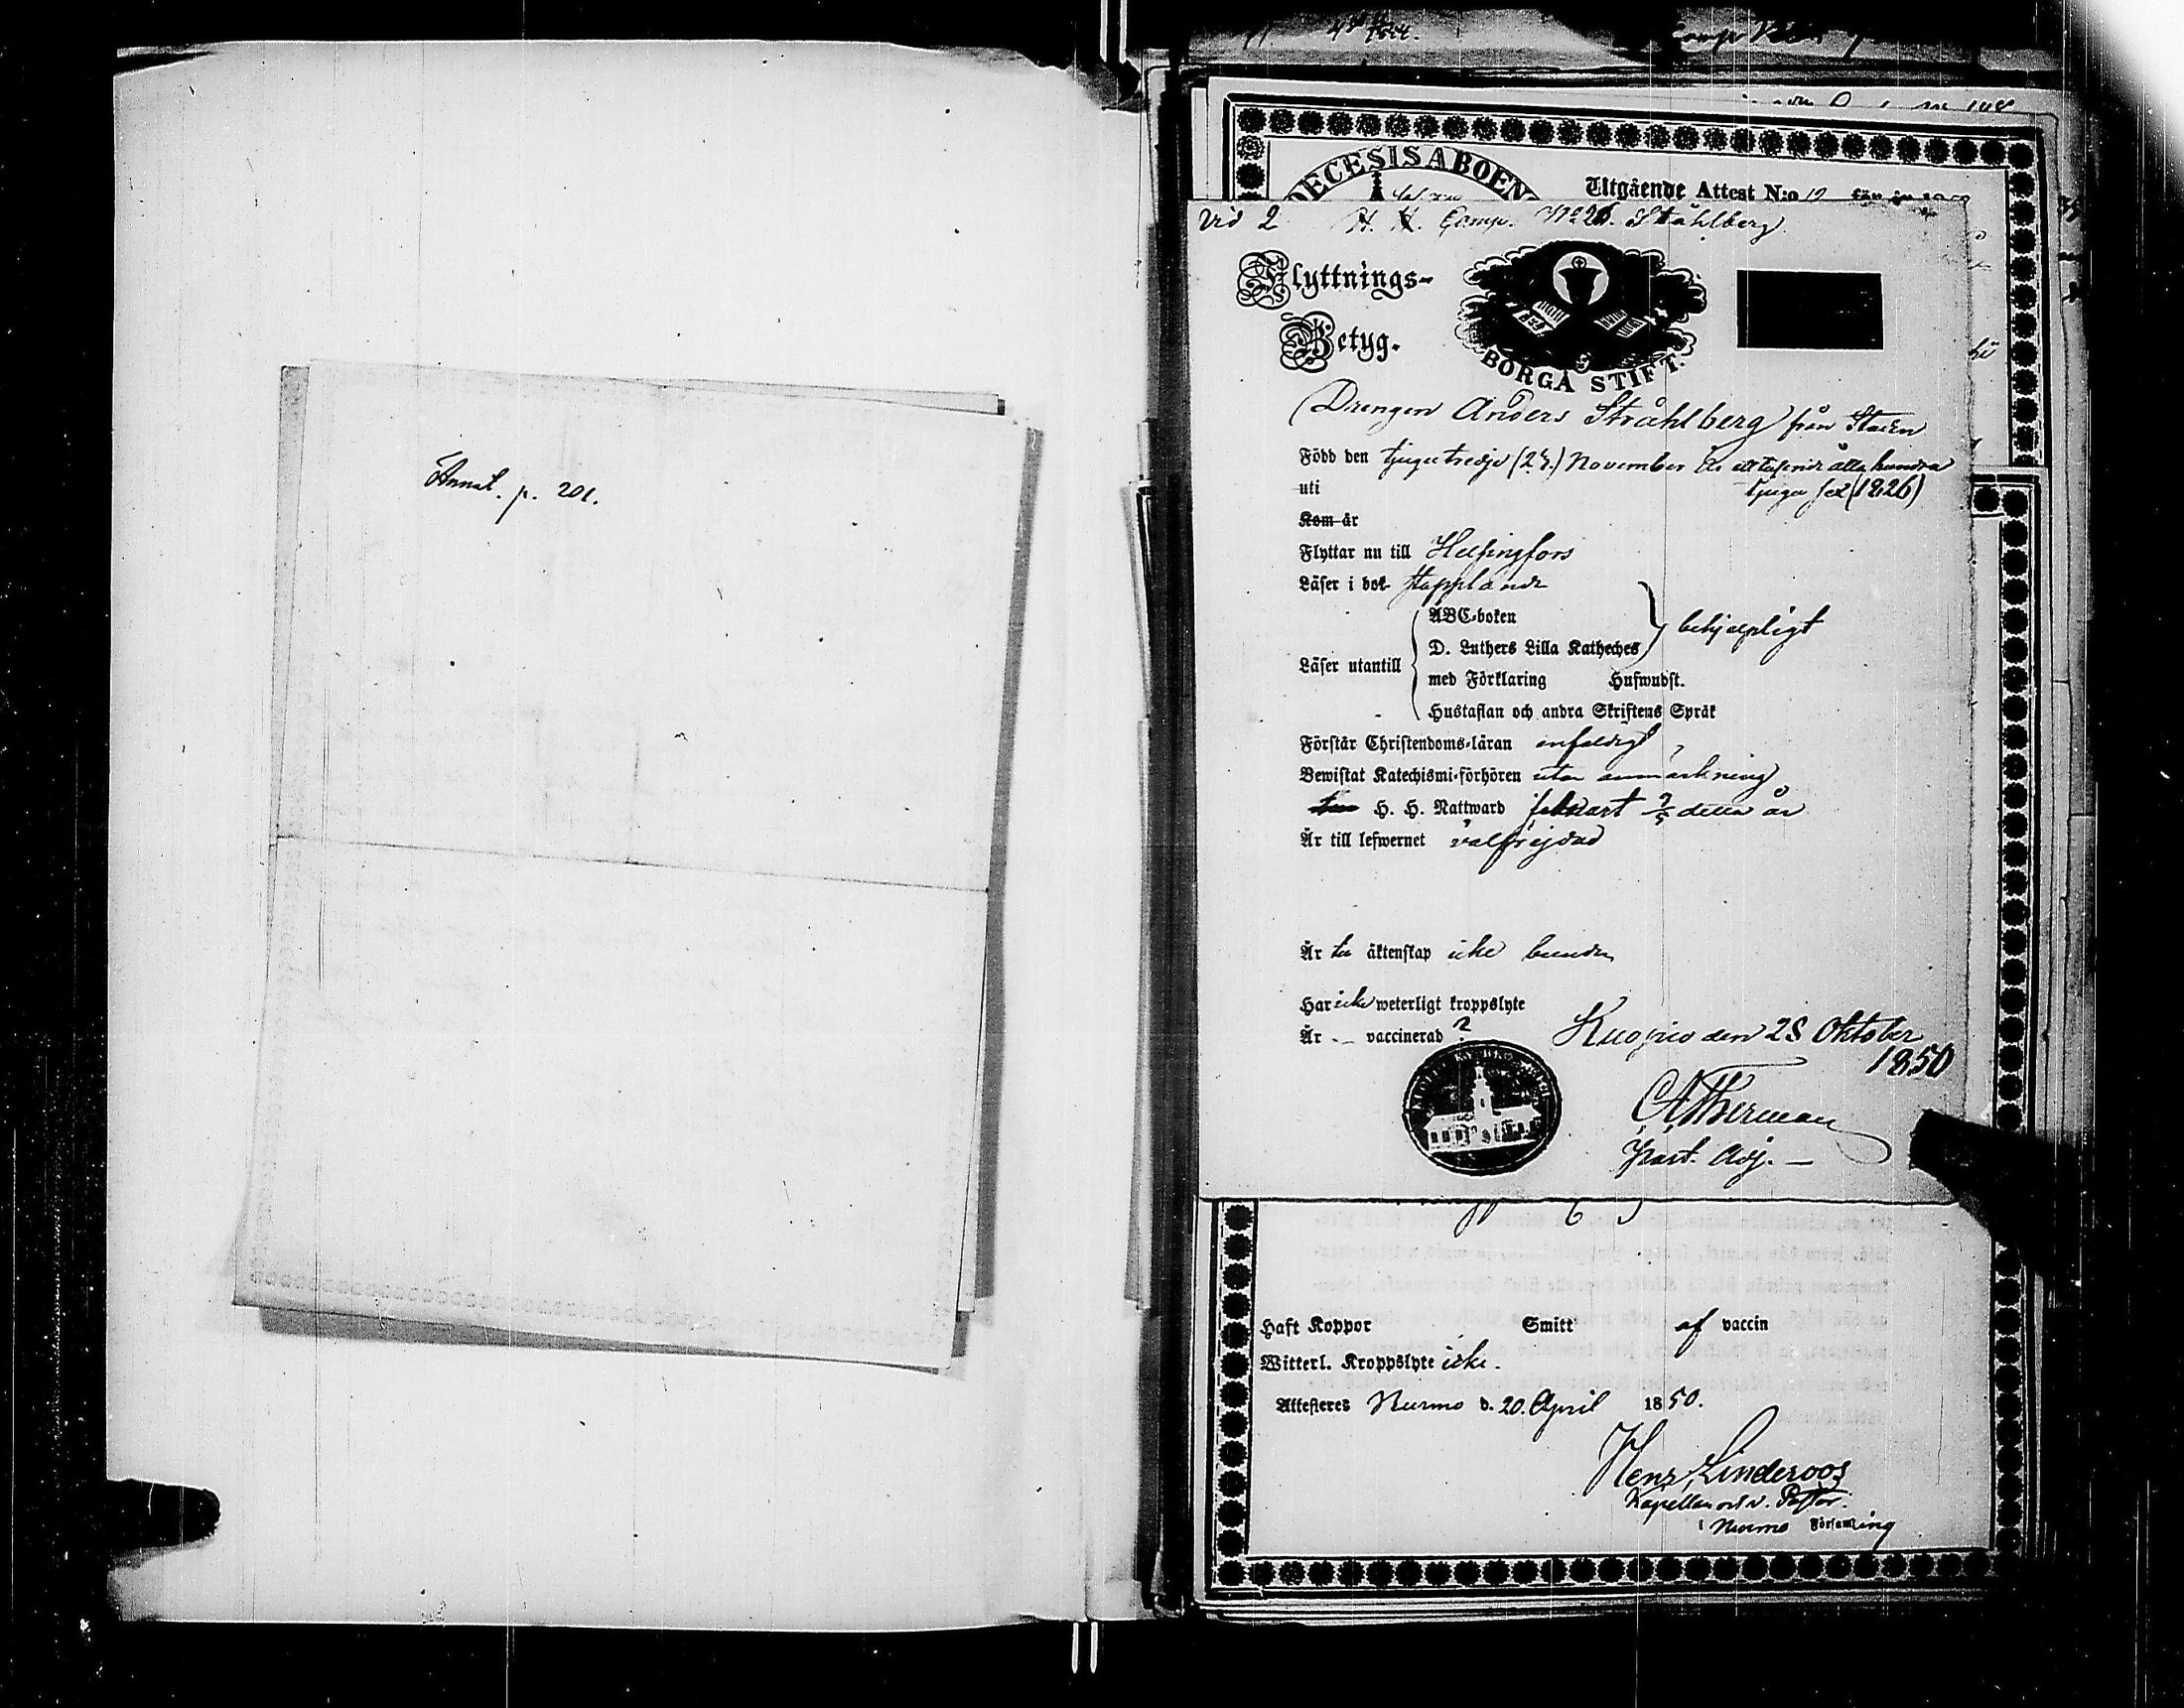 Annot. p. 201.
DIOECESIS ABOEN
Utgående Attest N:o 12 för år 1850
Vid 2 H. K. Comp. No 26. Ståhlberg
Flyttnings-
Betyg.
BORGÅ STIFT.
Drengen Anders Stråhlberg från Staden
Född den tjugutredje (23.) November år ett tusende åtta hundra
tjugu sex (1826)
uti
Kom år
Flyttar nu till Helsingfors
Läser i bok stapplande
ABC-boken
D. Luthers Lilla Katheches
behjelpligt
Läser utantill
med Förklaring Hufwudst.
Hustaflan och andra Skriftens Språk
Förstår Christendoms-läran enfaldigt
Bewistat Katechismi-förhören utan anmärkning
H. H. Nattward detta år
Är till lefwernet välfrejdad
Är till äktenskap icke bunden
Har icke weterligt kroppslyte
Är - vaccinerad ?
Kuopio den 28 Oktober
1850
Past. Adj.
Haft Koppor Smitt af vaccin
Witterl. Kroppslyte icke.
Attesteres Nurmo d. 20. April 1850.
Henr Linderoos
Kapellan och v. Pastor.
i Nurmo Församling